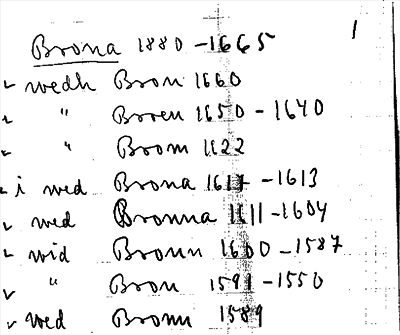 1
Brona 1880 - 1665
✓ wedh Bron 1660
✓ " Boren 1650 - 1640
✓ " Brom 1622
✓ i wed Brona 1617 - 1613
✓ wed Bronna 1611 - 1604
✓ wid Bronn 1600 - 1587
✓ " Bron 1591 - 1550
✓ wed Bronn 1589